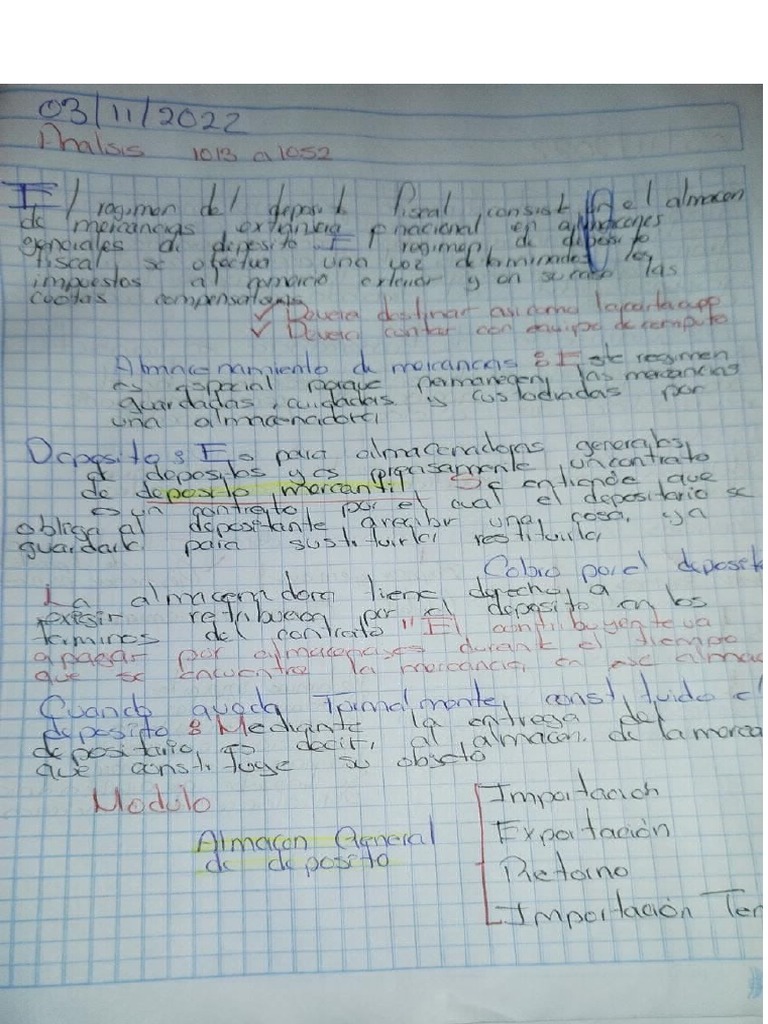 03/11/2022
Analsis 1013 a 1052
El regimen del deposit fiscal, consist en el almacen
de mercancias extranjera y nacional en almacenes
generales de deposito El regimen, de deposito
fiscal se efectua una vez determinados los
impuestos al comercio exterior y en su caso las
cuotas compensatorias
✓ Devera destinar asi como la carta cupo
✓ Devera contar con equipo de computo
Almacenamiento de mercancias : Este regimen
es especial porque permanecen las mercancias
guardadas, cuidadas y custodiadas por
una almacenadora
Deposito : Es para almacenadoras generales,
de depositos y es precisamente, un contrato
de deposito mercantil Se entiende, que
es un contrato, por el cual el depositario se
obliga al depositante, a recibir una, cosa, ya
guardarla para sustituirla restituirla
Cobro por el deposit
La almacenadora tiene, derecho, a
exigir retribucion por el deposito en los
terminos del contrato "El contribuyente va
a pagar por almacenajes durante el tiempo
que se encuentre la mercancia, en ese almac
Cuando queda formalmente, constituido el
deposito : Mediante la entrega del
depositario, es decir, al almacen. de la merca
que constituye su objeto
Modulo
Almacen General
de deposito
Importacion
Exportación
Retorno
Importación Tem